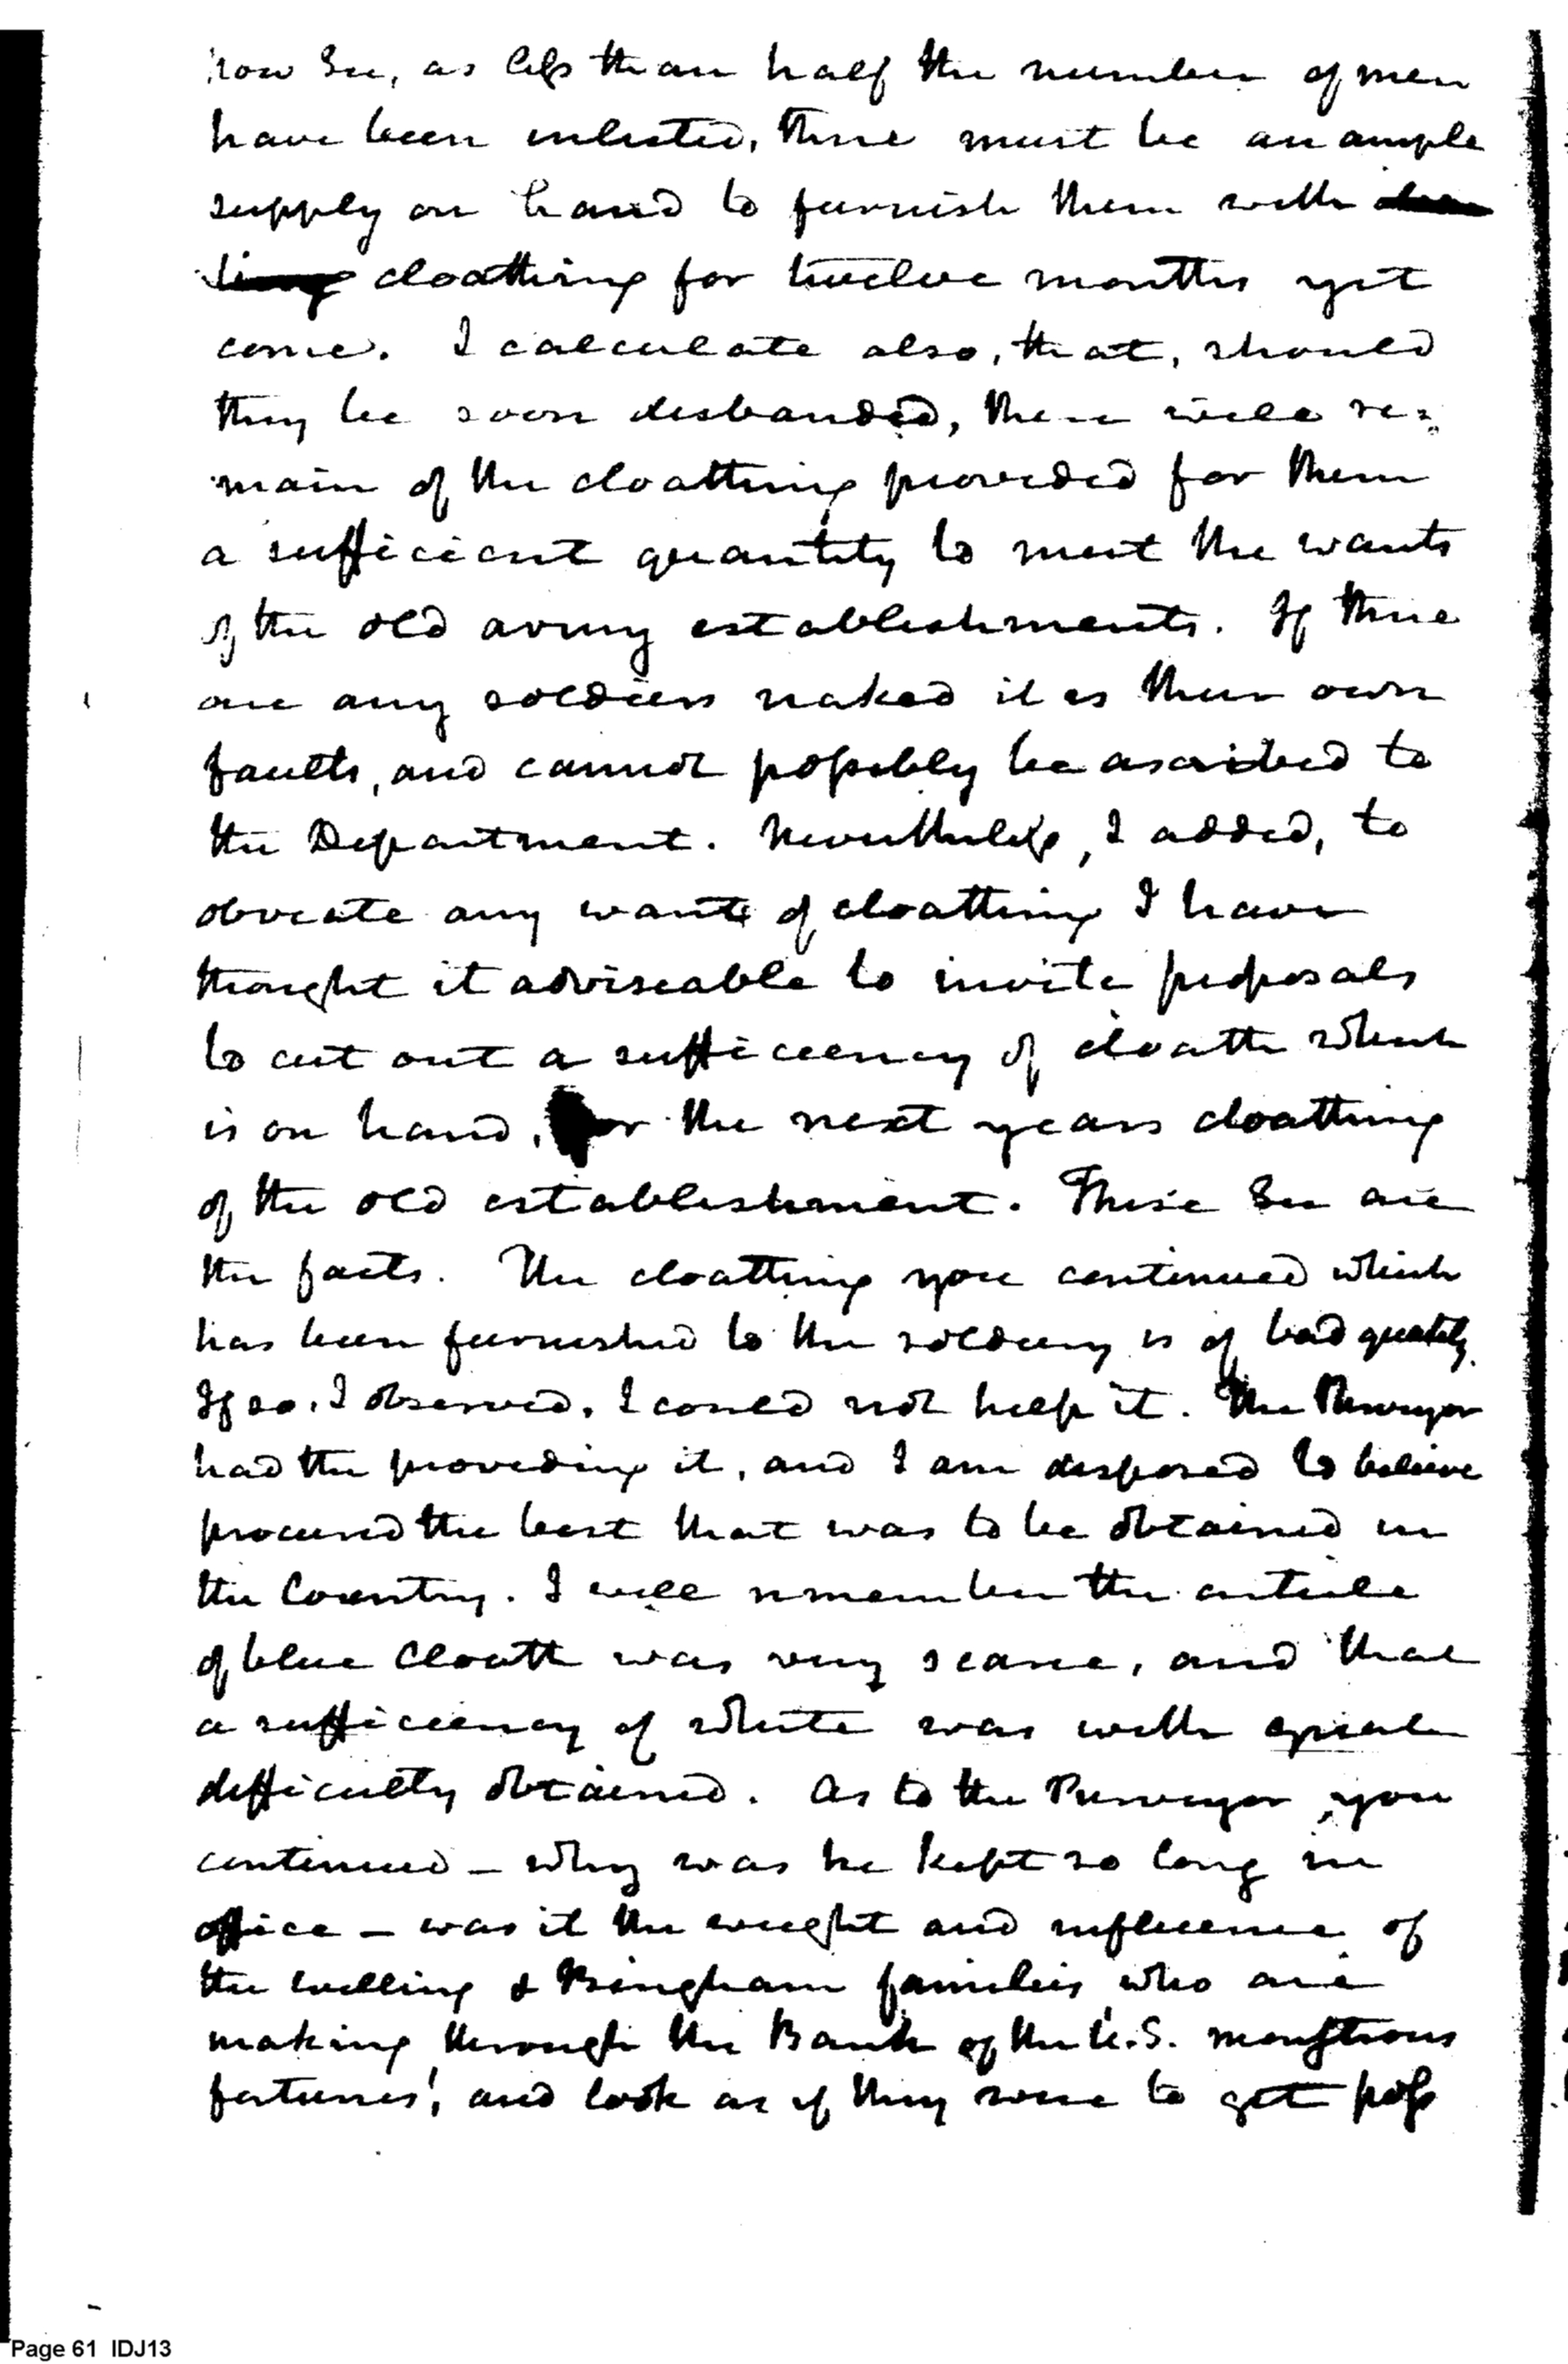 now Sir, as less than half the number of men
have been inlisted, there must be an ample
supply on hand to furnish them with
cloathing for twelve months yet
come. I calculate also, that, should
they be soon disbanded, there will re=
main of the cloathing provided for them
a sufficient quantity to meet the wants
of the old army establishments. If there
are any soldiers naked it is their own
faults, and cannot possibly be ascribed to
the Department. Nevertheless, I added, to
obviate any want of cloathing I have
thought it adviseable to invite proposals
to cut out a sufficiency of cloath which
is on hand, for the next years cloathing
of the old establishment. These Sir are
the facts. The cloathing you continued which
has been furnished to the soldiery is of bad quality.
If so, I observed, I could not help it. The Purveyor
had the providing it, and I am disposed to believe
procured the best that was to be obtained in
the Country. I well remember the article
of blue Cloath was very scarce, and that
a sufficiency of white was with equal
difficulty obtained. As to the Purveyor, you
continued – why was he kept so long in
office – was it the weight and influence of
the Willing & Bingham families who are
making through the Bank of the U.S. monstrous
fortunes', and look as if they were to get poss
Page 61 IDJ13